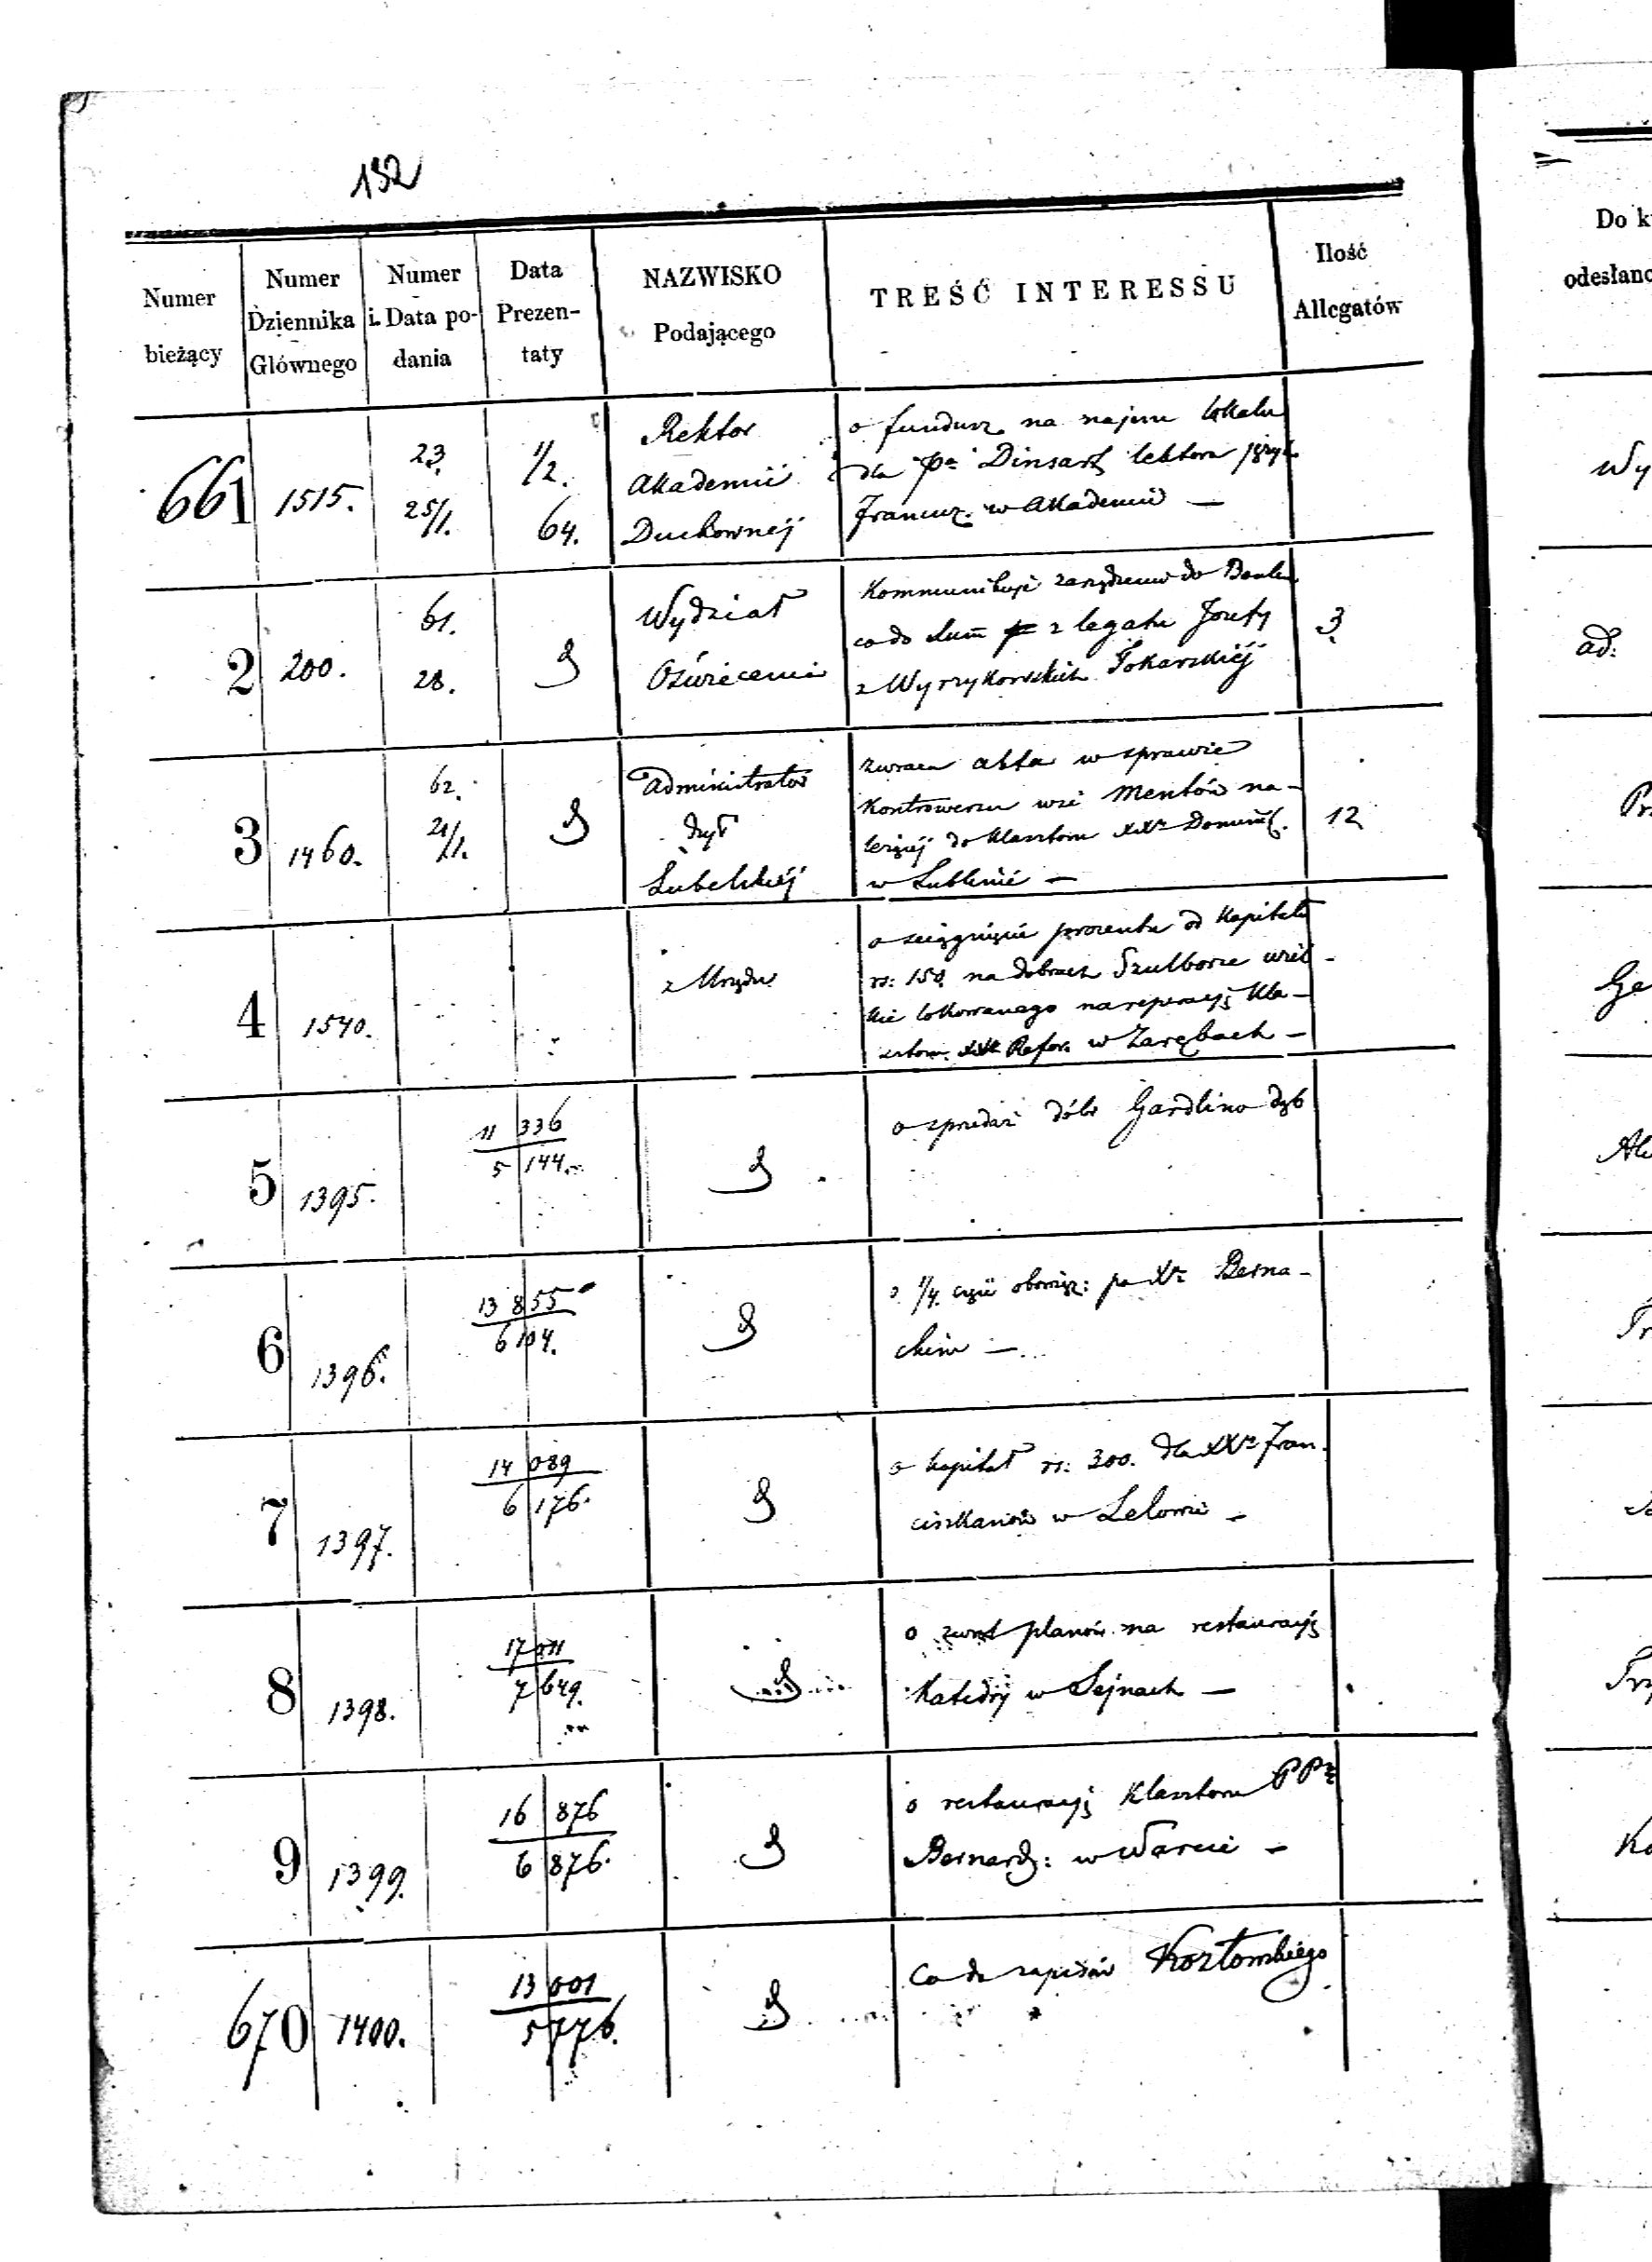 132
Numer bieżący
Numer Dziennika Głównego
Numer i Data podania
Data Prezentaty
NAZWISKO Podającego
TREŚĆ INTERESSU
Ilość Allegatów
661 1515. 23. 25/1. 1/2. 64.
Rektor
Akademii
Duchownej
o fundusz na najem lokalu
dla Pa Dinsart lektora języ.
Francuz. w Akademii —
2 200. 61. 28.
Wydział
Oświecenia
3
Kommunikuje zarządzenie do Banku
co do Sum z legatu Józefy
z Wyrzykowskich Tokarskiéj
3 1460. 62. 21/1.
Administrator
Dyt
Lubelskiéj
12
zwraca akta w sprawie
Kontrowersu wsi Mentów na-
leżącej do Klasztoru XXw Dominik.
w Lublinie —
4 1540.
z Urzędu
o ściągnięcie procentu od Kapitału
rs: 150 na dobrach Szulborze wiel-
kie lokowanego na reperacyą Kla-
sztoru XX Refor. w Zarębach —
5 1395. 11 336
5 144.
o sprzedaż dóbr Gardlino
6 1396. 13 855
6 104.
o 1/4 części obowiąz: po XX Berna-
7 1397. 14 089
6 176.
o kapitał rs: 300. dla XXw Fran-
ciszkanów w Lelowie —
8 1398. 17 011
7 649.
o zwrot planów na restauracyą
Katedry w Sejnach —
9 1399. 16 876
6 876.
o restauracyą Klasztoru PP
Bernard: w Warcie —
670 1400. 13 001
5 776.
Co do zapisów Kozłowskiego
Do k
odesłano
Wy
ad:
Pr
Ge
Al
Tr
Ka